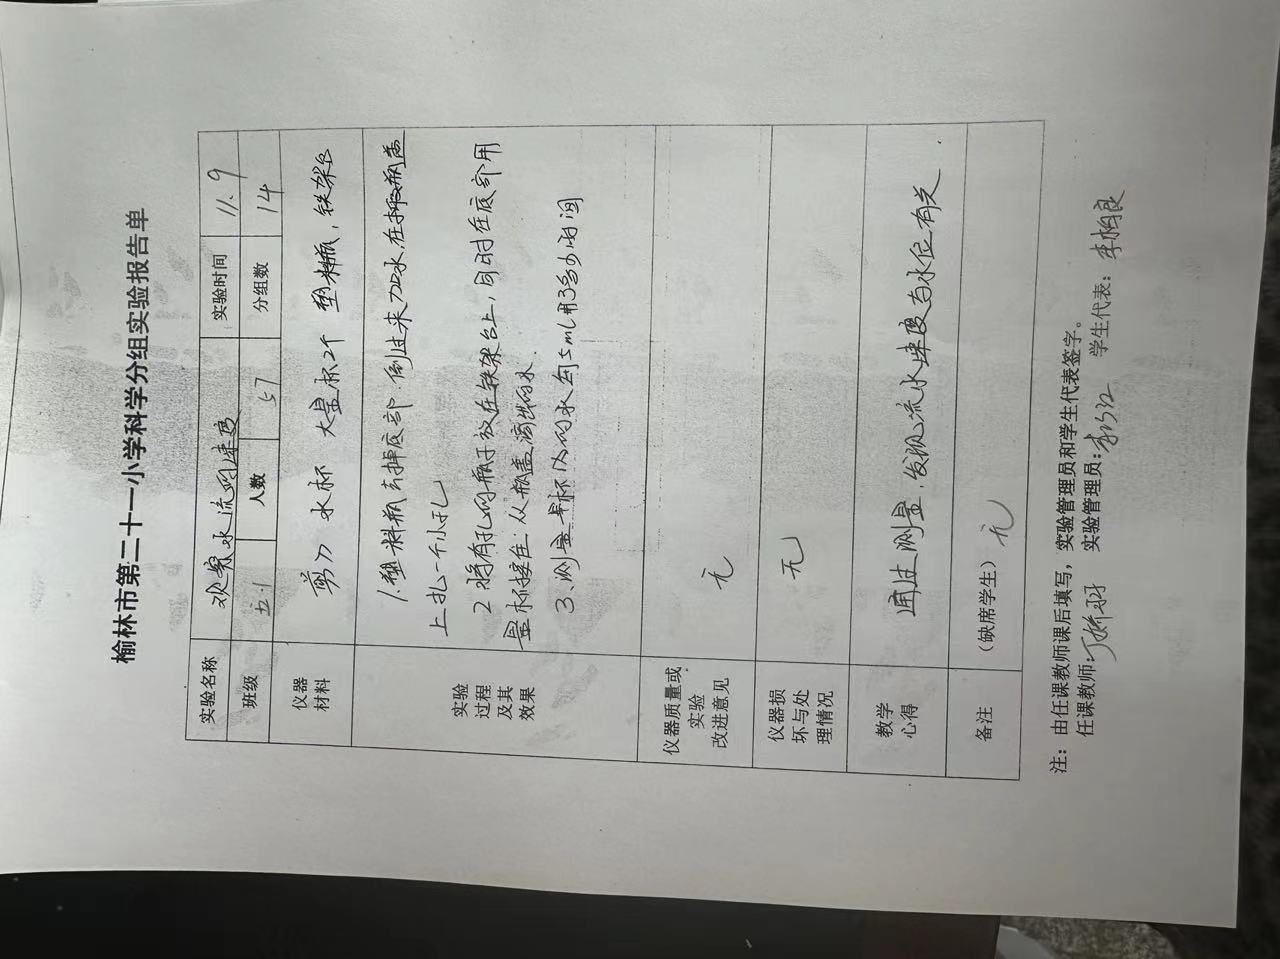 榆林市第二十一小学科学分组实验报告单
实验名称 观察水流的速度 实验时间 11.9
班级 五.1 人数 57 分组数 14
仪器
材料
剪刀 水杯 大量杯2个 塑料瓶，铁架台
实验
过程
及其
效果
1.塑料瓶剪掉底部 倒过来加水 在瓶盖
上扎一个小孔
2 将有孔的瓶子放在铁架台上，同时在底部用
量杯接住 从瓶盖滴出的水
3、测量量杯以的水匀5mL用了多少时间
仪器质量或
实验
改进意见
无
仪器损
坏与处
理情况
无
教学
心得
通过测量，发现流水速度与水位有关．
备注
（缺席学生）无
注：由任课教师课后填写，实验管理员和学生代表签字。
任课教师: 实验管理员: 学生代表: